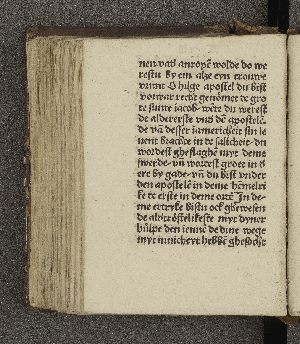 nen vañ anropē wolde do we
restu by em alze eyn trouwe
vrunt O hilge apostel du bist
vorwar recht genömet te gro
te sunte iacob wēte du werest
de alder erste vñ dē apostelē
de vā desser iamericheit sin le
uent brachte in de salicheit vn
wordest gheslaghē myt deme
swerde vn worest groet in d
ere by gade vn du bist vnder
den apostelē in deme hēmelri
ke te erste in deme orte In de
me ertryke bistu ock ghewesen
de alder össelikeste myt dyner
hulpe den ienne de dine wege
myt innicheyt hebbē ghesocht